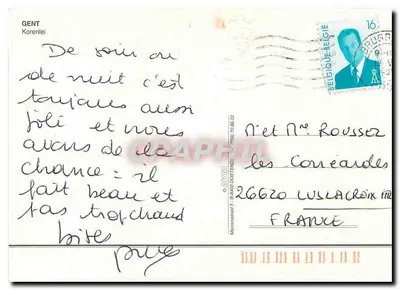 GENT
Korenlei
De soir ou
de nuit c'est
toujours aussi
joli et nous
avons de la
chance : il
fait beau et
pas trop chaud
bises
16
BELGIQUE-BELGIË
M et Mme ROUSSEZ
les
26620 LUS LA CROIX HTE
FRANCE